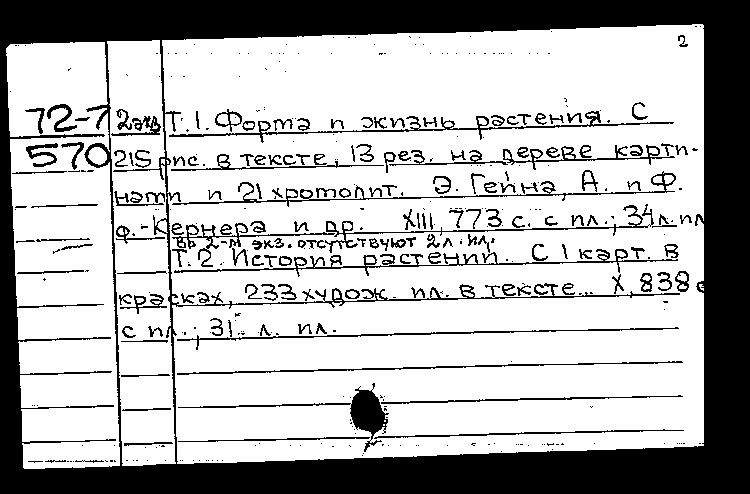 2
72-7 2экз Т.1. Форма и жизнь растения. С
570 215 рис. в тексте, 13 рез. на дереве карти-
нами и 21 хромолит. Э. Гейна, А. и Ф.
ф.-Кернера и др. XIII, 773 с. с ил.; 34 л. ил
Во 2-м экз. отсутствуют 2 л. ил.
Т.2. История растений. С 1 карт. в
красках, 233 худож. ил. в тексте... X, 838 с
с ил.; 31 л. ил.